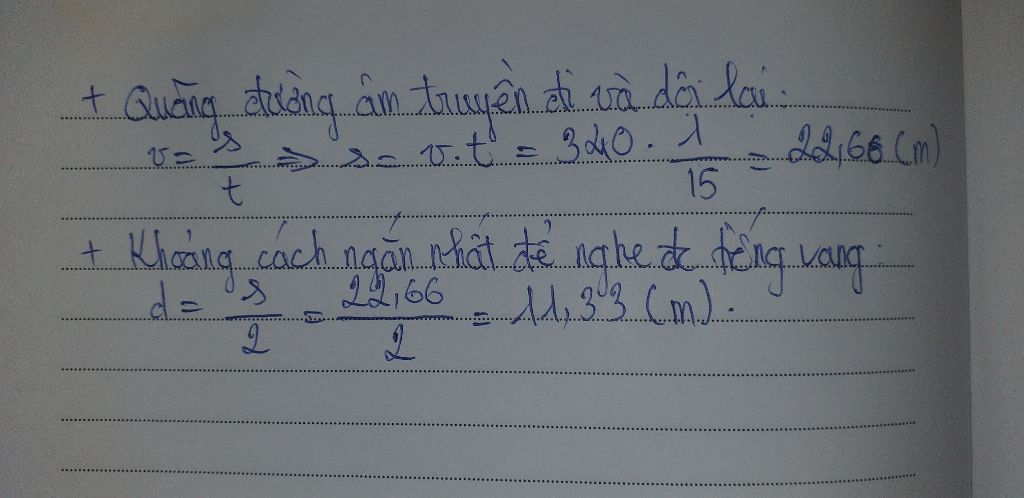 + Quãng đường âm truyền đi và dội lại:
v = s/t => s = v.t = 340 . 1/15 = 22,66 (m)
+ Khoảng cách ngắn nhất để nghe đc tiếng vang:
d = s/2 = 22,66/2 = 11,33 (m).